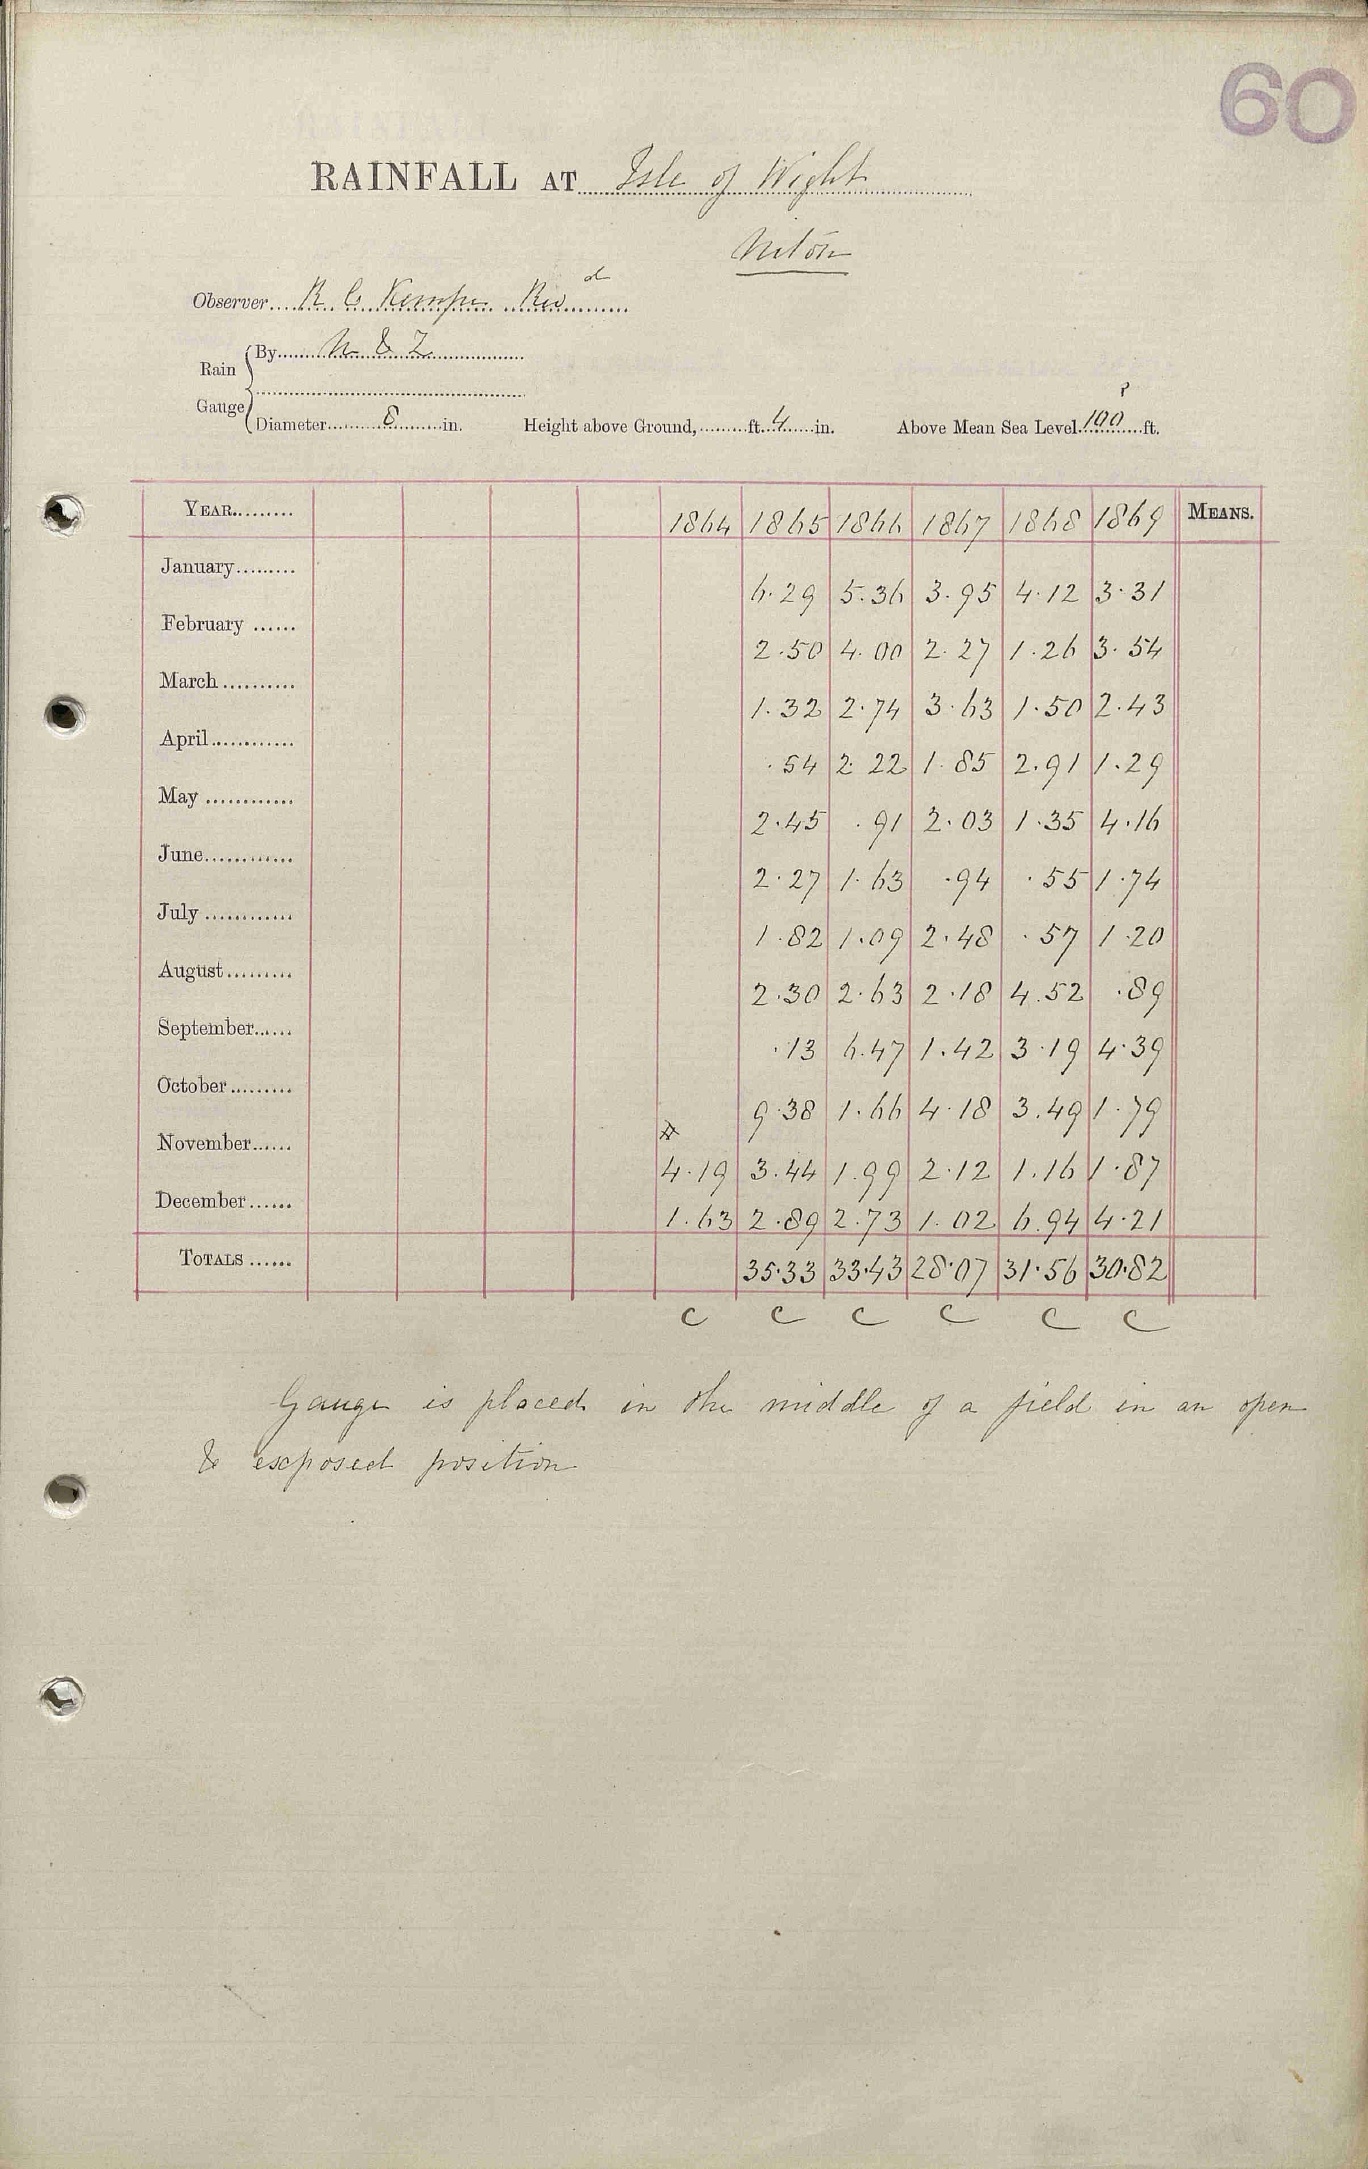 60
RAINFALL AT Isle of Wight
Niton
Observer R C Kempe Revd
Rain Gauge
By N & Z
Diameter 8 in. Height above Ground, ft. 4 in. Above Mean Sea Level 100 ? ft.
YEAR 1864 1865 1866 1867 1868 1869 MEANS.
January 6.29 5.36 3.95 4.12 3.31
February 2.50 4.00 2.27 1.26 3.54
March 1.32 2.74 3.63 1.50 2.43
April .54 2.22 1.85 2.91 1.29
May 2.45 .91 2.03 1.35 4.16
June 2.27 1.63 .94 .55 1.74
July 1.82 1.09 2.48 .57 1.20
August 2.30 2.63 2.18 4.52 .89
September .13 6.47 1.42 3.19 4.39
October 9.38 1.66 4.18 3.49 1.79
November 4.19 3.44 1.99 2.12 1.16 1.87
December 1.63 2.89 2.73 1.02 6.94 4.21
TOTALS 35.33 33.43 28.07 31.56 30.82
C C C C C C
Gauge is placed in the middle of a field in an open
& exposed position